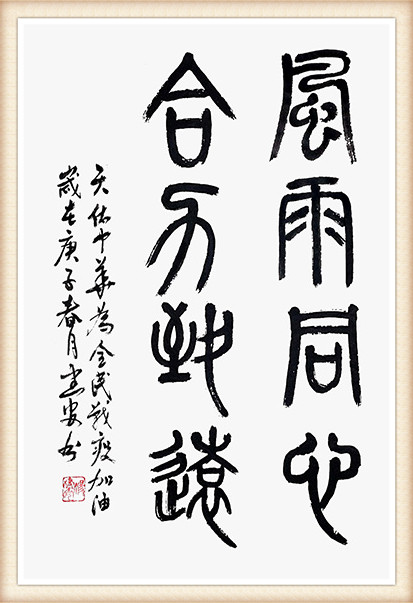 風雨同心
合力致遠
天佑中華為全民戰疫加油
歲在庚子春月